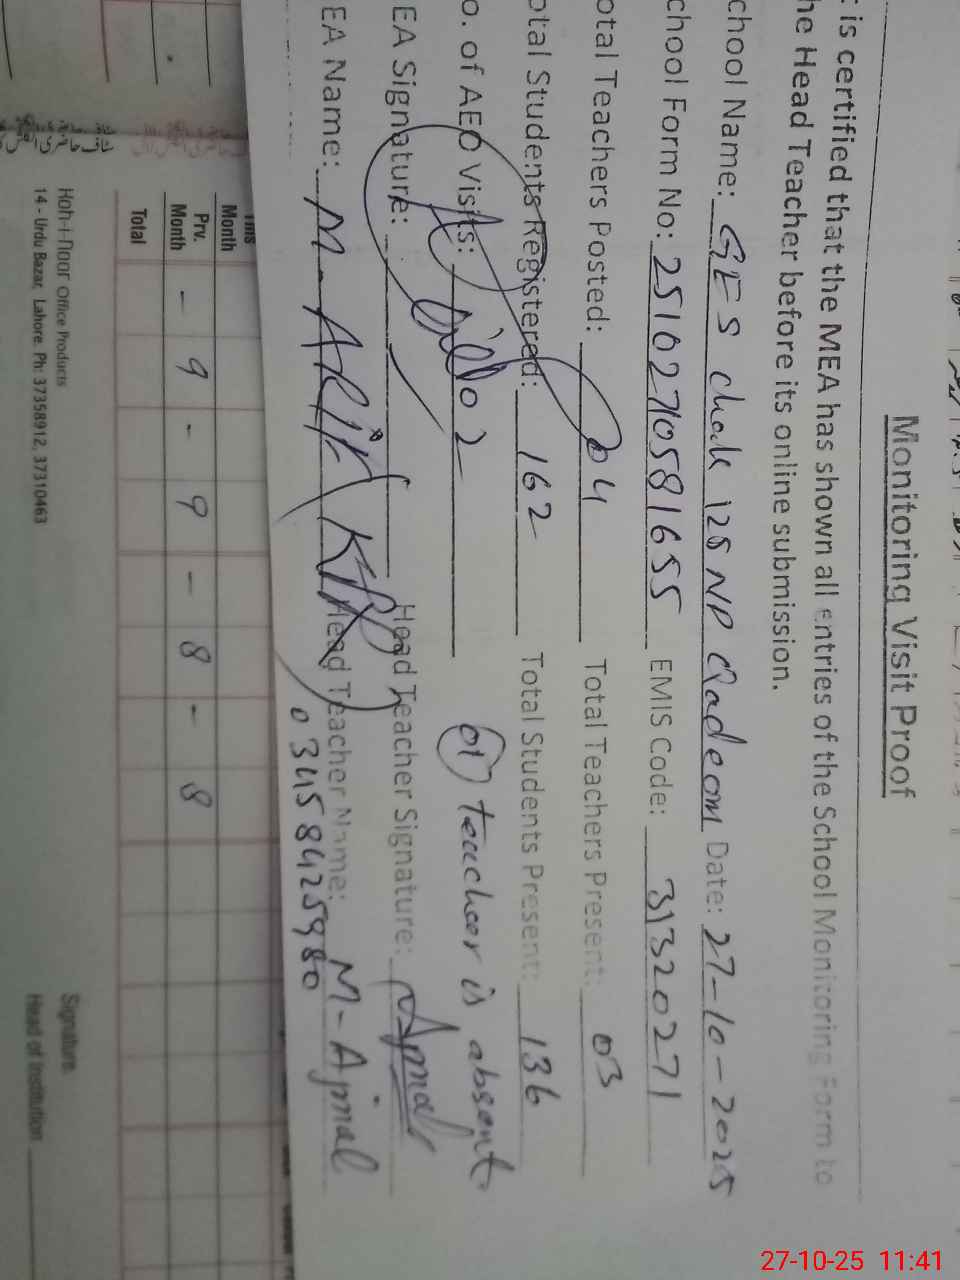 Monitoring Visit Proof
t is certified that the MEA has shown all entries of the School Monitoring Form to
he Head Teacher before its online submission.
chool Name: GES chak 125 NP Qadeem Date: 27-10-2025
chool Form No: 2516271058 1655 EMIS Code: 31320271
otal Teachers Posted: 04 Total Teachers Present: 03
otal Students Registered: 162 Total Students Present: 136
o. of AEO Visits: 02 01 teacher is absent
EA Signature: Head Teacher Signature: Ajmal
EA Name: M- Head Teacher Name: M-Ajmal
03458425980
This
Month
Prv.
Month - 9 - 9 - 8 - 8
Total
Koh-i-noor Office Products
14 - Urdu Bazar, Lahore. Ph: 37358912, 37310463
Signature.
Head of Institution
27-10-25 11:41